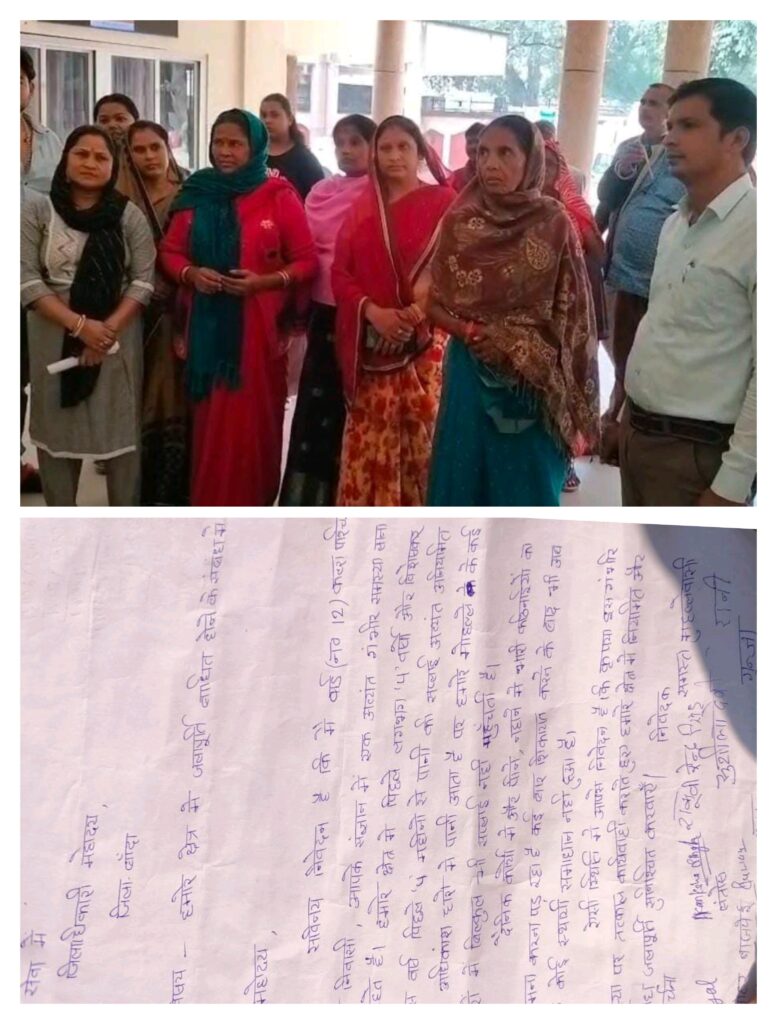 सेवा में
जिलाधिकारी महोदय,
जिला बाँदा
विषय – हमारे क्षेत्र में जलापूर्ति बाधित होने के संबंध में
महोदय,
सविनय निवेदन है कि मैं वार्ड (नं० 12) कटरा
निवासी, आपके संज्ञान में एक अत्यंत गंभीर समस्या लाना
हमारे क्षेत्र में पिछले लगभग '4' वर्षों और विशेषकर
वर्ष पिछले '4' महीनों से पानी की सप्लाई अत्यंत अनियमित
अधिकांश घरों में पानी आता है पर हमारे मोहल्ले के कई
में बिल्कुल भी सप्लाई नहीं पहुँचती है।
दैनिक कार्यों में और पीने, नहाने में भारी कठिनाईयों का
करना पड़ रहा है कई बार शिकायत करने के बाद भी अब
कोई स्थायी समाधान नहीं हुआ है।
ऐसी स्थिति में आपसे निवेदन है कि कृपया इस गंभीर
पर तत्काल कार्यवाही कराते हुए हमारे क्षेत्र में नियमित और
जलापूर्ति सुनिश्चित करवाएँ।
निवेदक
समस्त मुहल्लेवासी
सुशीला देवी
रानी